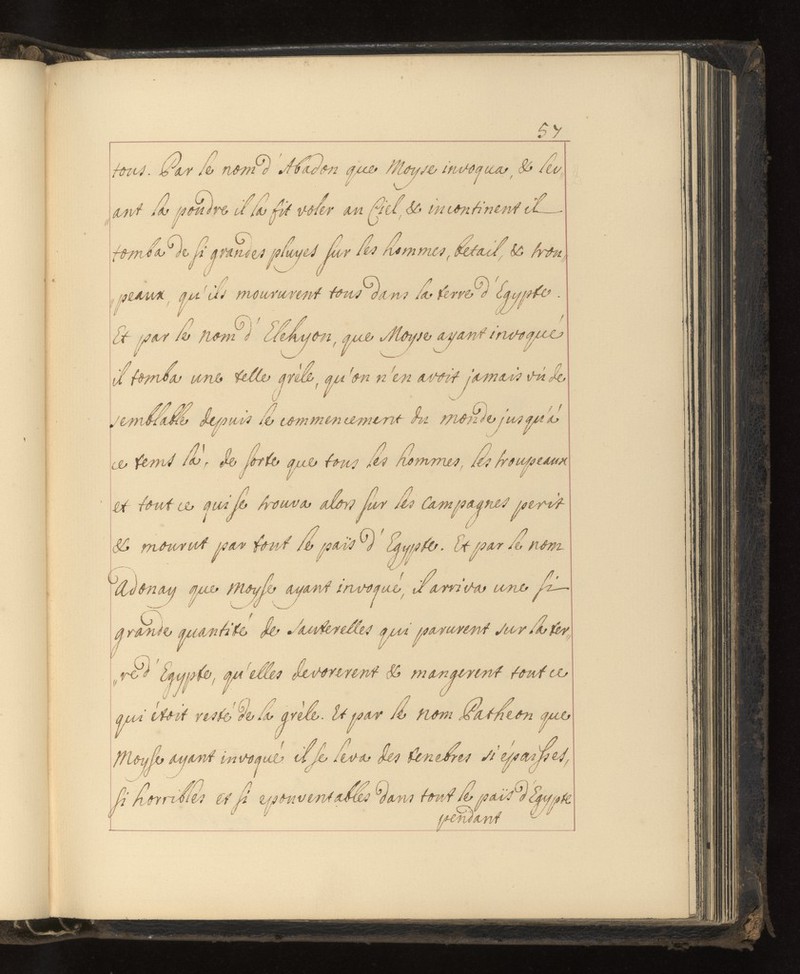 57
tous. Par le nom d'Abadon que Moyse invoqua, & lev„
„ant la poudre il la fit voler au Ciel, & incontinent il
tomba de si grandes pluyes sur les hommes, betail, & trou„
„peaux, qu'ils moururent tous dans la terre d'Egypte.
Et par le nom d'Elehyon, que Moyse ayant invoqué
il tomba une telle grèle, qu'on n'en avoit jamais vû de
semblable depuis le commencement du monde jusqu'à
ce tems là, de sorte que tous les hommes, les troupeaux
et tout ce qui se trouva alors sur les Campagnes perit
& mourut par tout le païs d'Egypte. Et par le nom
Adonay que Moyse ayant invoqué, il arriva une si
grande quantité de sauterelles qui parurent sur la ter„
„re d'Egypte, qu'elles devorerent & mangerent tout ce
qui étoit resté de la grèle. Et par le nom Patheon que
Moyse ayant invoqué il se leva des tenebres si épaisses,
si horribles et si epouventables dans tout le païs d'Egypte
pendant